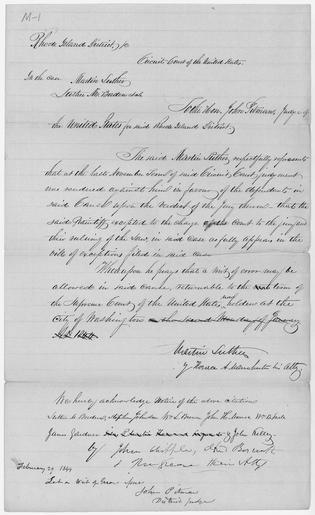 M-1
Rhode Island District, ss
Circuit Court of the United States
In the case Martin Luther
Luther M. Borden et als
To the Hon. John Pitman, Judge of
the United States for said Rhode Island District,
The said Martin Luther, respectfully represents
that at the last November Term of said Circuit Court, judgment
was rendered against him in favour of the defendants in
said Cause upon the verdict of the jury therein that the
said Plaintiff excepted to the charge of the Court to the jury and
their ruling of the Law, in said case as fully appears in the
bill of exceptions filed in said case
Whereupon he prays that a writ of error may be
allowed in said cause, returnable to the next term of
the Supreme Court of the United States, holden at the
City of Washington on the second Monday of January
Martin Luther
by Horace A. Manchester his Atty
We hereby acknowledge notice of the above citation
Luther M. Borden, Stephen Johnson Wm L. Brown John H. Munroe Wm
James Gardner & John Kelley
by John Whipple,
their Attys
February 29 1844
Let a Writ of Error issue
John Pitman
District Judge